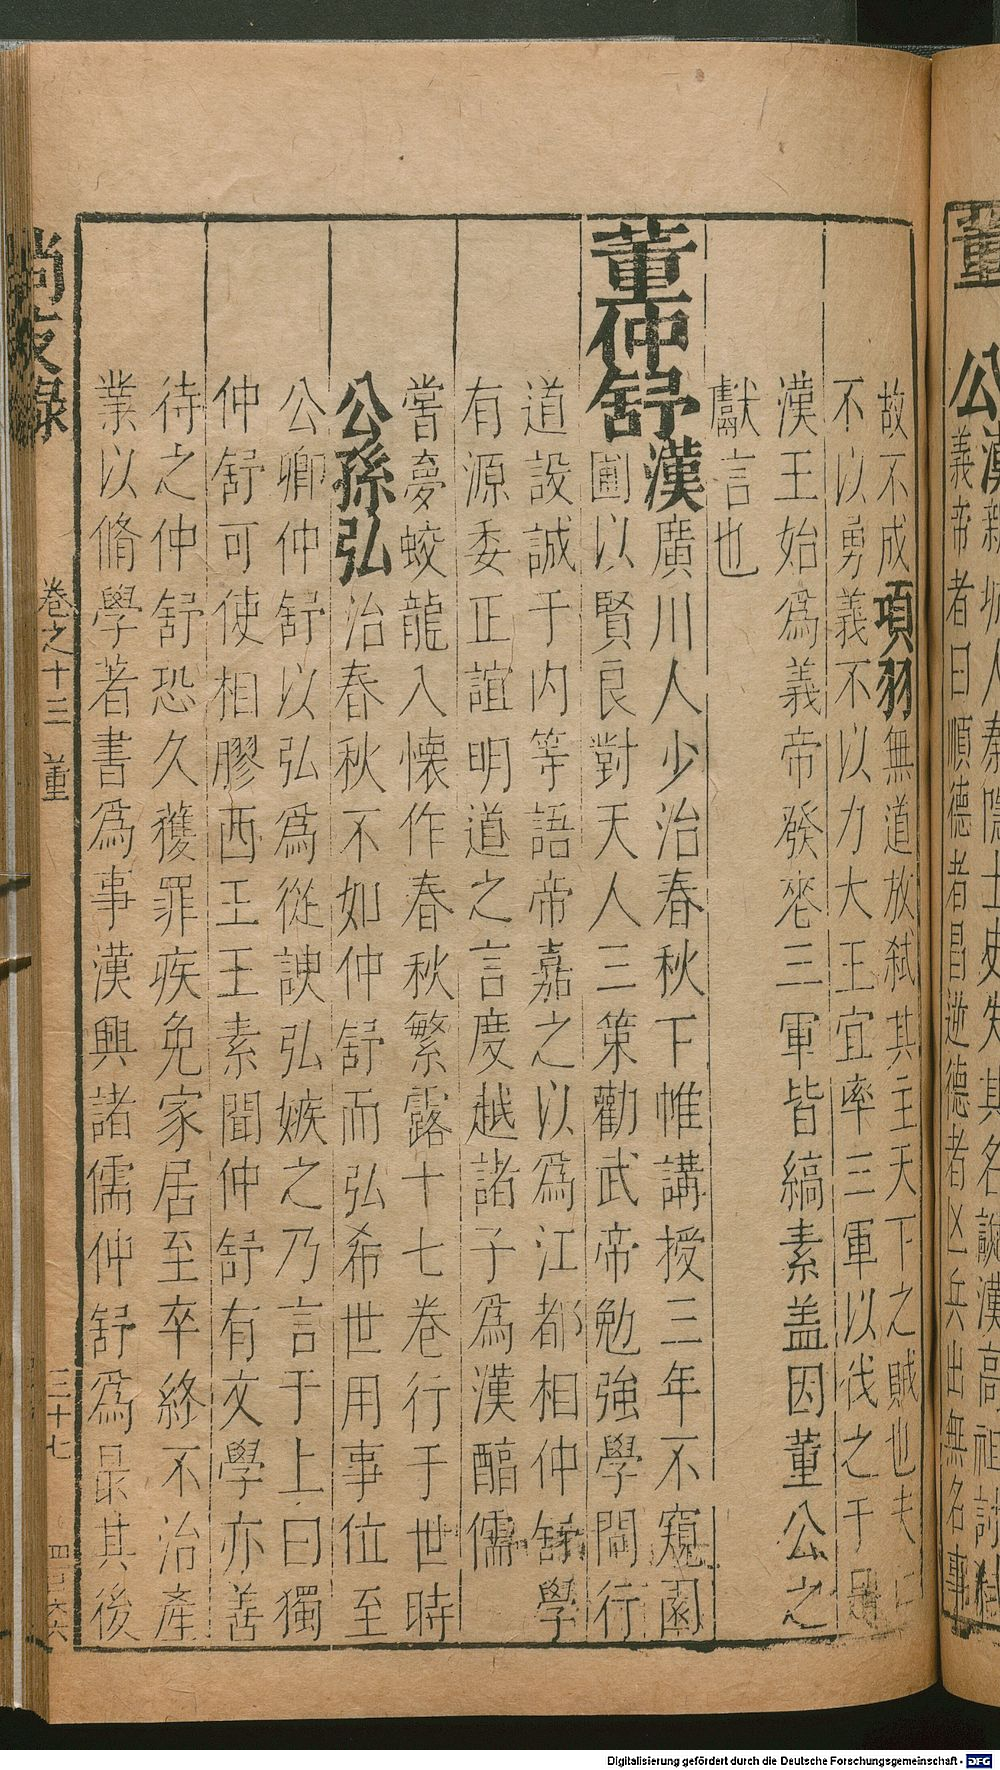 董
公漢新城人秦
義帝者曰順德者昌逆德者凶兵出無名事
故不成項羽無道放弑其主天下之賊也夫仁
不以勇義不以力大王宜率三軍以伐之于是
漢王始爲義帝發喪三軍皆縞素盖因董公之
獻言也
董仲舒漢廣川人少治春秋下帷講授三年不窺園
圃以賢良對天人三策勸武帝勉強學問行
道設誠于内等語帝嘉之以爲江都相仲舒學
有源委正誼明道之言度越諸子爲漢醇儒
嘗夢蛟龍入懷作春秋繁露十七卷行于世時
公孫弘治春秋不如仲舒而弘希世用事位至
公卿仲舒以弘爲從諛弘嫉之乃言于上曰獨
仲舒可使相膠西王王素聞仲舒有文學亦善
待之仲舒恐久獲罪疾免家居至卒終不治產
業以脩學著書爲事漢興諸儒仲舒爲最其後
尚友錄
卷之十三 董
三十七
Digitalisierung gefördert durch die Deutsche Forschungsgemeinschaft - DFG